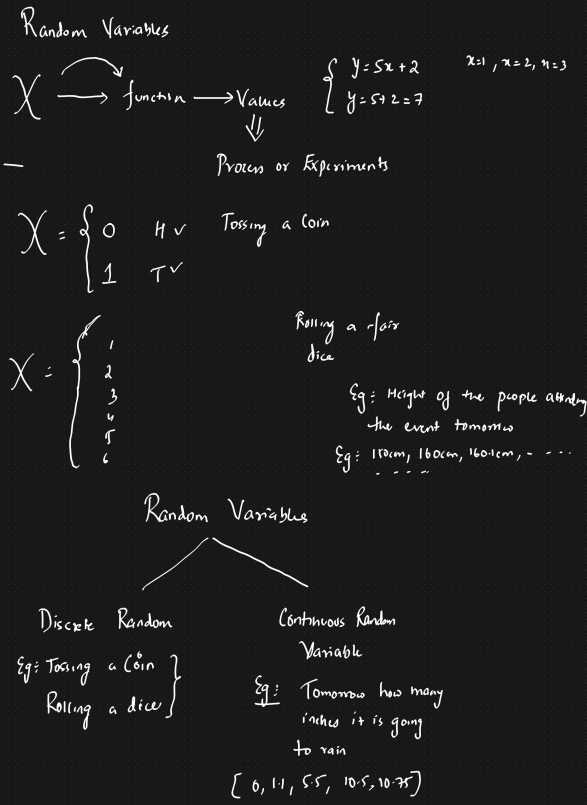 Random Variables
X → function → Values
{ y = 5x + 2
y = 5 + 2 = 7
x=1, x=2, x=3
⇓
Process or Experiments
X = { 0 H ✓
1 T ✓
Tossing a Coin
X = {
1
2
3
4
5
6
Rolling a fair
dice
Eg: Height of the people attending
the event tomorrow
Eg: 160cm, 160.1cm, - - - -
- - - -
Random Variables
Discrete Random
Eg: Tossing a Coin
Rolling a dice }
Continuous Random
Variable
Eg: Tomorrow how many
inches it is going
to rain
[0, 1.1, 5.5, 10.5, 10.75]